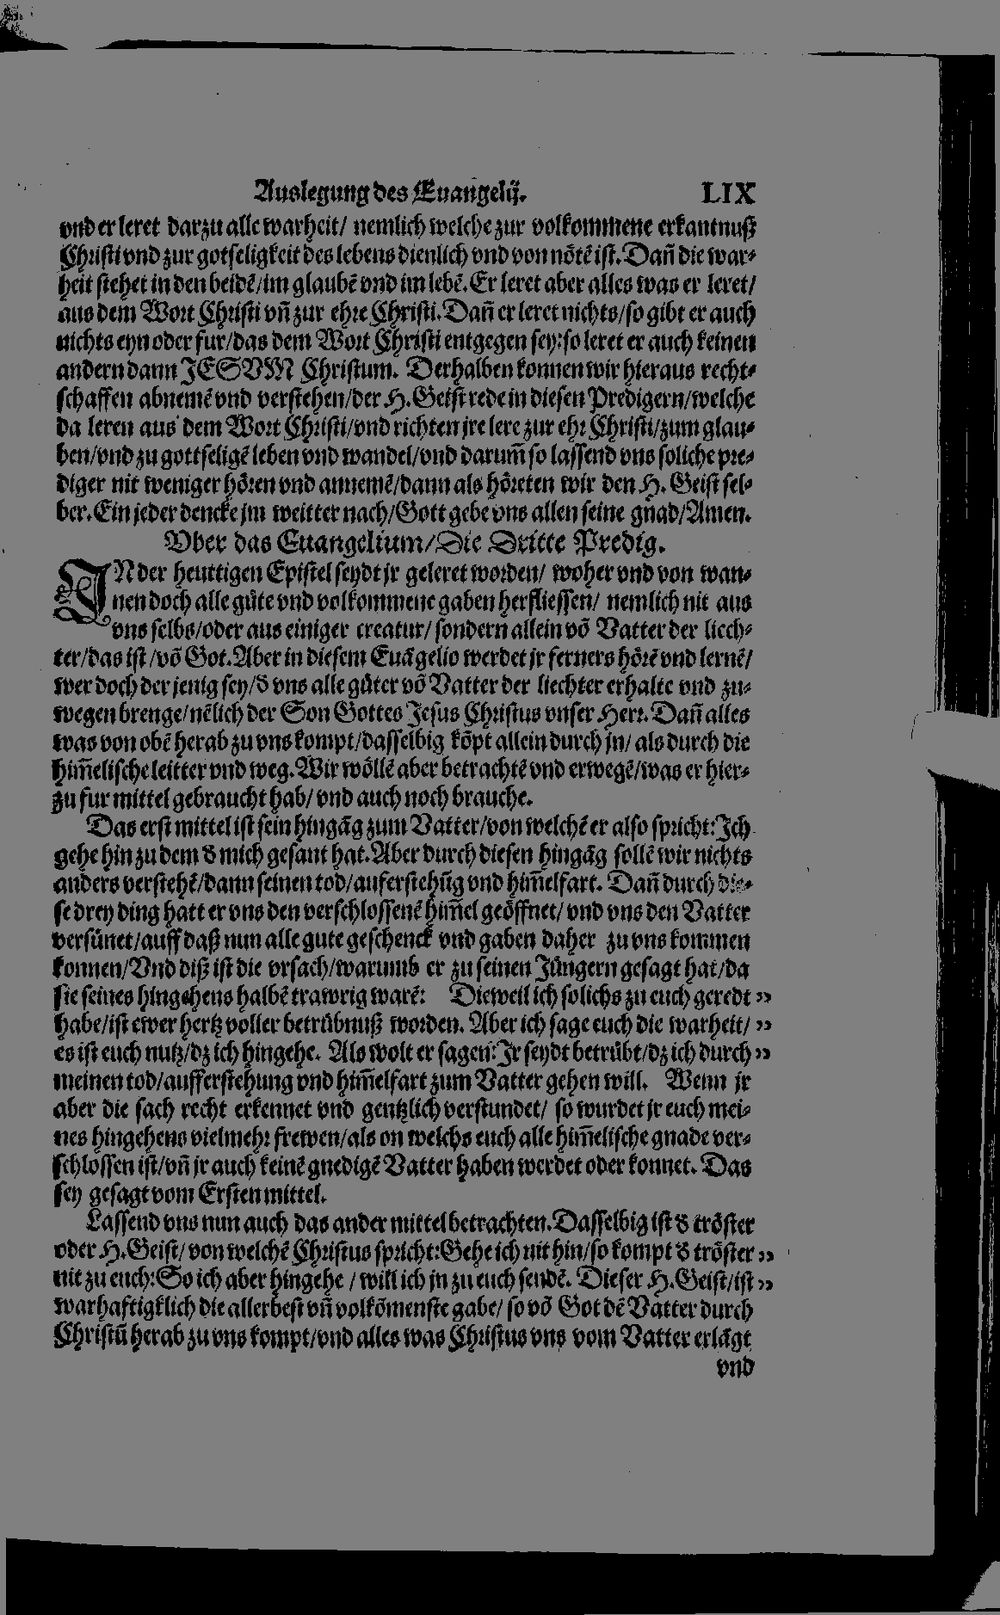 Auslegung des Euangelij. LIX
vnd er leret darzu alle warheit/ nemlich welche zur volkommene erkantnuß
Christi vnd zur gotseligkeit des lebens dienlich vnd von nötē ist. Dañ die war-
heit stehet in den beidē/im glaubē vnd im lebē. Er leret aber alles was er leret/
aus dem Wort Christi vñ zur ehre Christi. Dañ er leret nichts/so gibt er auch
nichts eyn oder fur/das dem Wort Christi entgegen sey: so leret er auch keinen
andern dann JESVM Christum. Derhalben konnen wir hieraus recht-
schaffen abnemē vnd verstehen/der H. Geist rede in diesen Predigern/welche
da leren aus dem Wort Christi/vnd richten jre lere zur ehr Christi/zum glau-
ben/vnd zu gottseligē leben vnd wandel/vnd darum̄ so lassend vns soliche pre-
diger nit weniger hören vnd annemē/dann als höreten wir den H. Geist sel-
ber. Ein jeder dencke jm weitter nach/Gott gebe vns allen seine gnad/Amen.
Vber das Euangelium/Die Dritte Predig.
IN der heuttigen Epistel seydt jr geleret worden/ woher vnd von wan-
nen doch alle güte vnd volkommene gaben herfliessen/ nemlich nit aus
vns selbs/oder aus einiger creatur/ sondern allein vō Vatter der liech-
ter/das ist/vō Got. Aber in diesem Euāgelio werdet jr ferners hörē vnd lernē/
wer doch der jenig sey/d̕ vns alle güter vō Vatter der liechter erhalte vnd zu-
wegen brenge/nēlich der Son Gottes Jesus Christus vnser Herr. Dañ alles
was von obē herab zu vns kompt/dasselbig kōpt allein durch jn/ als durch die
him̄elische leitter vnd weg. Wir wöllē aber betrachtē vnd erwegē/was er hier-
zu fur mittel gebraucht hab/ vnd auch noch brauche.
Das erst mittel ist sein hingāg zum Vatter/von welchē er also spricht: Ich
gehe hin zu dem d̕ mich gesant hat. Aber durch diesen hingāg sollē wir nichts
anders verstehē/dann seinen tod/auferstehūg vnd him̄elfart. Dañ durch die-
se drey ding hatt er vns den verschlossenē him̄el geöffnet/ vnd vns den Vatter
versünet/auff daß nun alle gute geschenck vnd gaben daher zu vns kommen
konnen/Vnd diß ist die vrsach/warumb er zu seinen Jüngern gesagt hat/da
sie seines hingehens halbē trawrig warē: Dieweil ich solichs zu euch geredt »
habe/ist ewer hertz voller betrübnuß worden. Aber ich sage euch die warheit/ »
es ist euch nutz/dz ich hingehe. Als wolt er sagen: Jr seydt betrübt/dz ich durch »
meinen tod/aufferstehung vnd him̄elfart zum Vatter gehen will. Wenn jr
aber die sach recht erkennet vnd gentzlich verstundet/ so wurdet jr euch mei-
nes hingehens vielmehr frewen/als on welchs euch alle him̄elische gnade ver-
schlossen ist/vñ jr auch keinē gnedigē Vatter haben werdet oder konnet. Das
sey gesagt vom Ersten mittel.
Lassend vns nun auch das ander mittel betrachten. Dasselbig ist d̕ tröster
oder H. Geist/ von welchē Christus spricht: Gehe ich nit hin/so kompt d̕ tröster »
nit zu euch: So ich aber hingehe/ will ich jn zu euch sendē. Dieser H. Geist/ist »
warhaftigklich die allerbest vñ volkōmenste gabe/ so vō Got dē Vatter durch
Christū herab zu vns kompt/vnd alles was Christus vns vom Vatter erlāgt
vnd